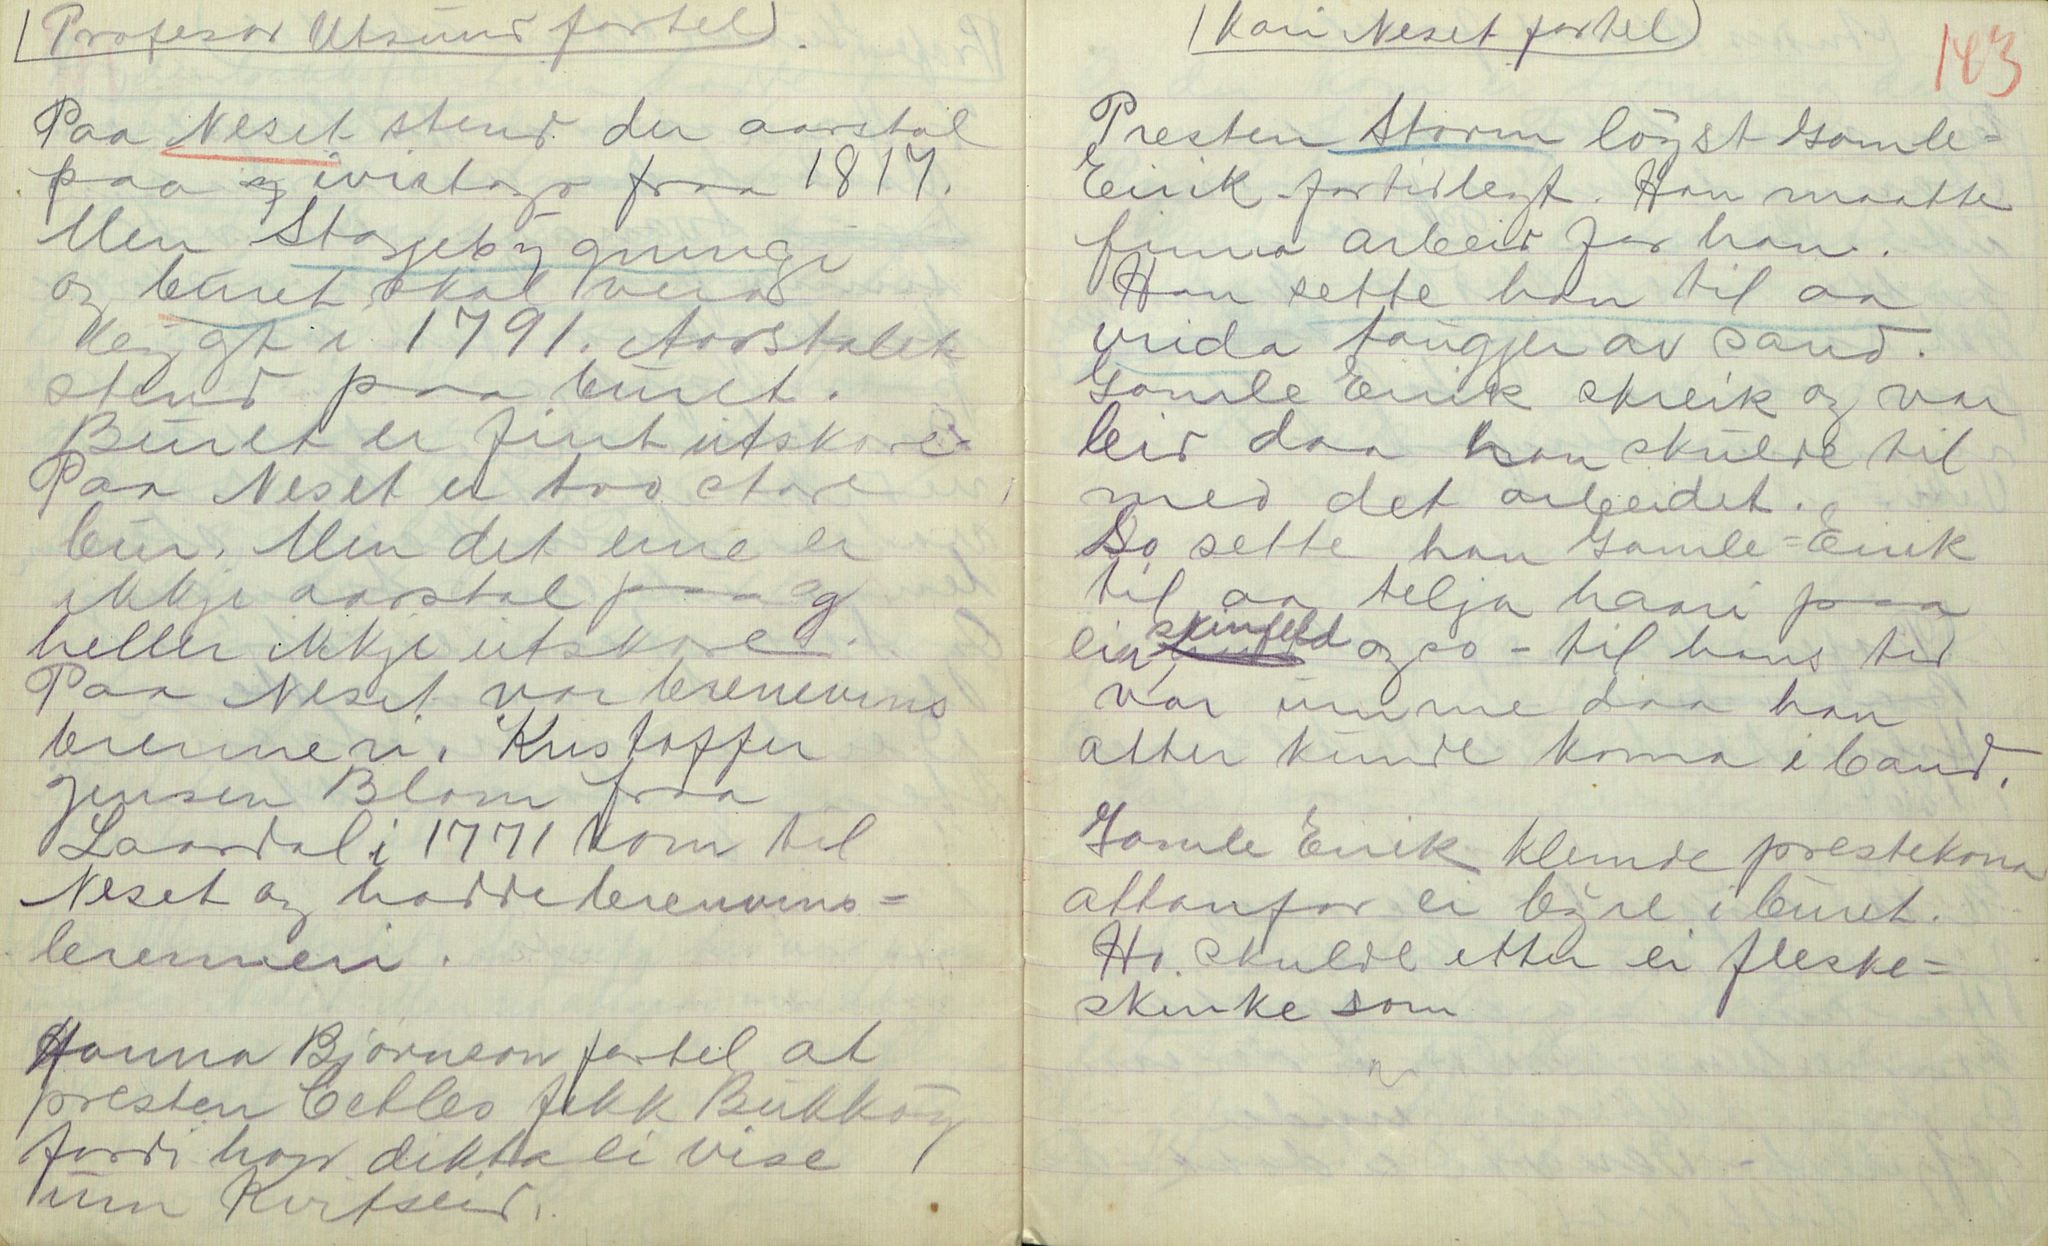 (Profesor Utsund fortel).
Paa Neset stend der aarstal
paa ei ivistogo fraa 1817.
Men Stogebygningi
og buret skal vera
bygt i 1791. Aarstalet
stend paa buret.
Buret er fint utskore.
Paa Neset er two store
bur. Men det eine er
ikkje aarstal paa og
heller ikkje utskore.
Paa Neset var brennevins
brenneri. Kristoffer
Jensen Blom fraa
Laardal i 1771 kom til
Neset og hadde brennvins=
brenneri.
Hanna Bjørnson fortel at
presten Eckleo fekk Bukkøy
fordi han dikta ei vise
um Kvitseid.
(Kari Neset fortel)
143
Presten Storm löyst Gamle=
Eirik fortidlegt. Han maatte
finna arbeid for han.
Han sette han til aa
vrida taugjer av sand.
Gamle Eirik skreik og var
leid daa han skulde til
med det arbeidet.
So sette han Gamle=Eirik
til aa telja haari paa
ein skinfeld og so - til hans tid
var umme daa han
atter kunde koma i band.
Gamle Eirik klemde prestekona
attanfor ei byre i buret.
Ho skulde etter ei fleske=
skinke som